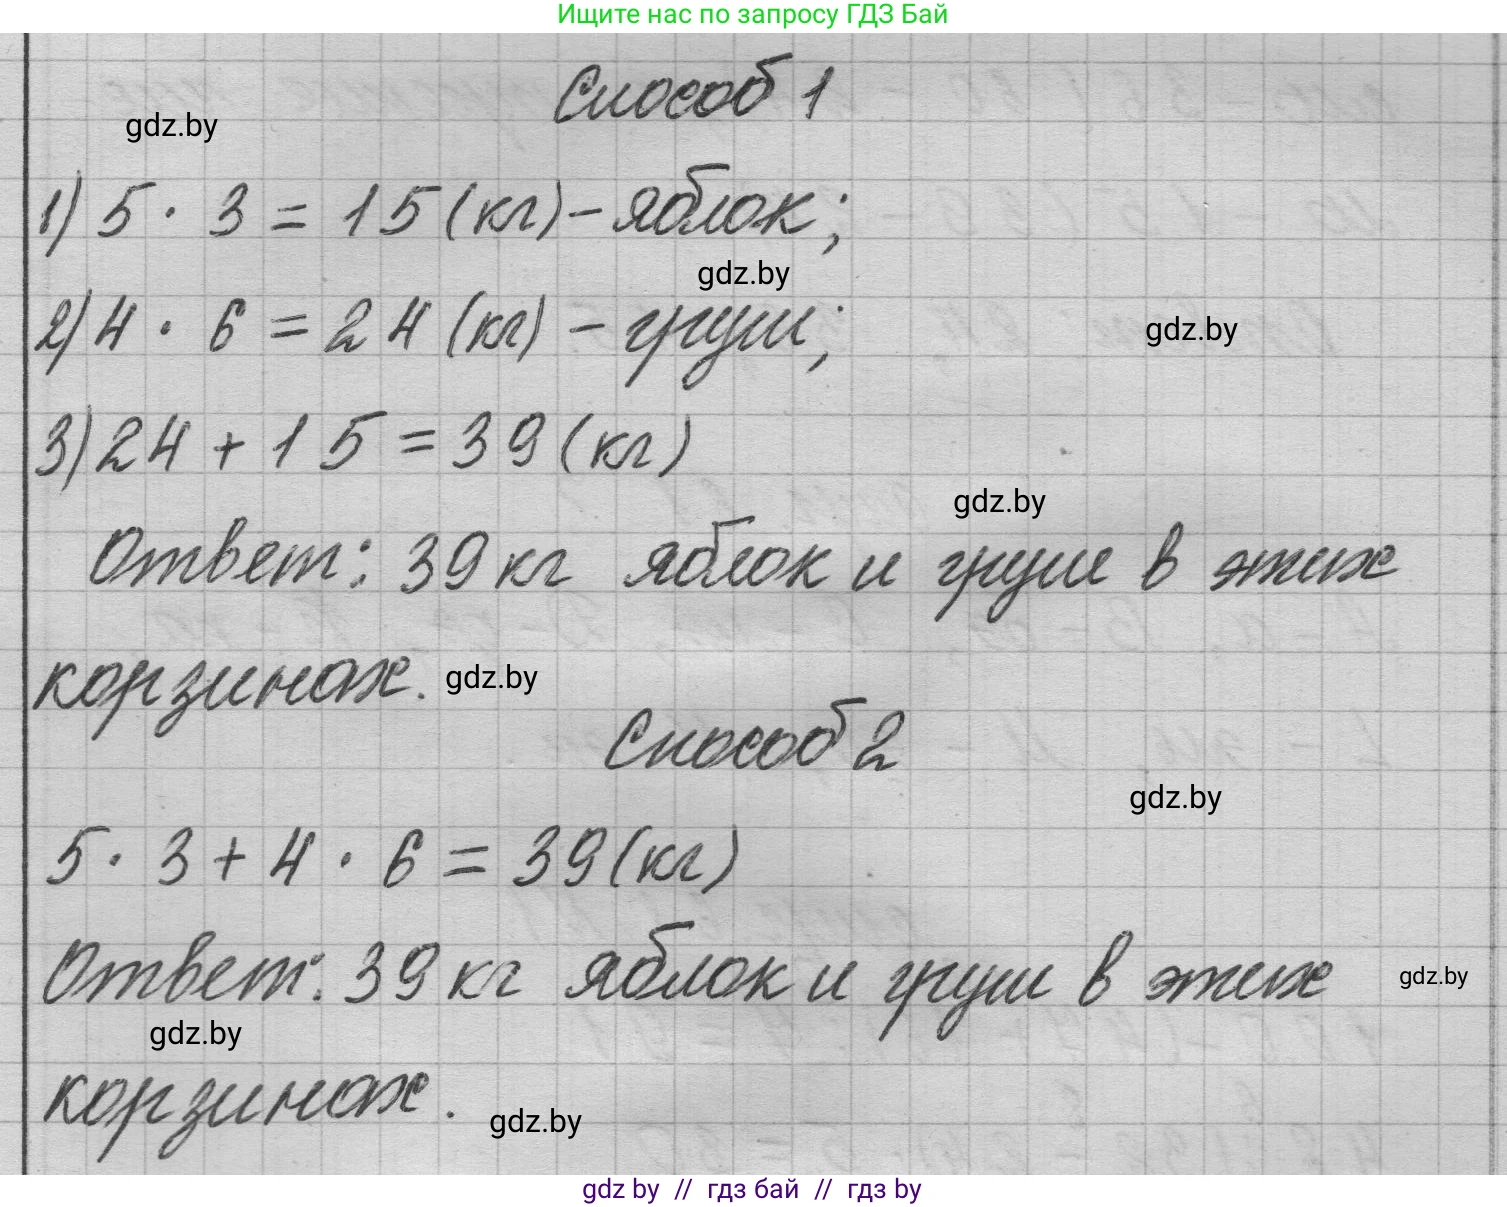 Ищите нас по запросу ГДЗ Бай
Способ 1
gdz.by
1) 5 · 3 = 15 (кг) – яблок;
gdz.by
2) 4 · 6 = 24 (кг) – груш;
gdz.by
3) 24 + 15 = 39 (кг)
gdz.by
Ответ: 39 кг яблок и груш в этих
корзинах.
gdz.by
Способ 2
gdz.by
5 · 3 + 4 · 6 = 39 (кг)
Ответ: 39 кг яблок и груш в этих
gdz.by
gdz.by
корзинах.
gdz.by
gdz by // гдз бай // гдз by